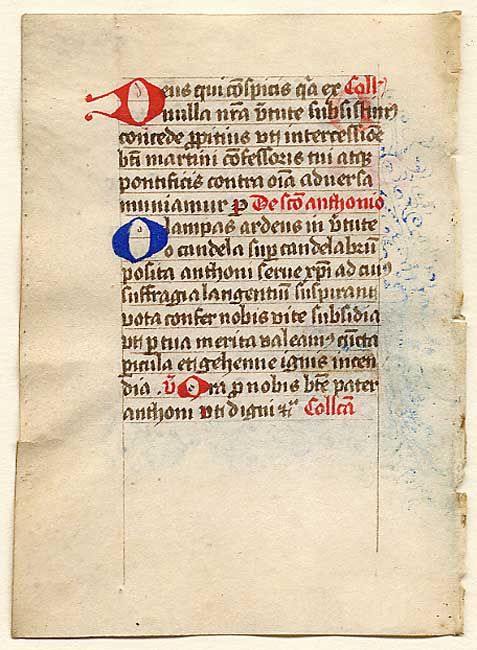 Deus qui cōspicis qꝛ ex Coll‑
nulla nr̄a v̄tute subsistim⁹
concede ꝓpitius vti intercessiōe
bti̅ martini cōfessoris tui atqꝫ
pontificis contra oīa aduersa
muniamur ꝑ De scō anthonio
O lampas ardens in v̄tute
o candela suꝑ candelabrū
posita anthoni serue xp̄i ad cui⁹
suffragia langentiū suspirant
vota confer nobis vite subsidia
vti ꝑ tua merita valeam⁹ cūcta
ꝑicula et gehenne ignis incen
dia ℣ Ora ꝓ nobis bt̄e pater
anthoni vti digni ⁊cͣ Collcā